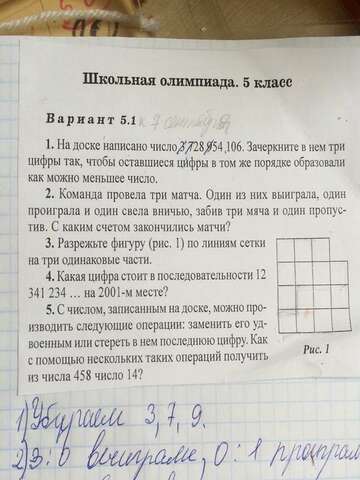 Школьная олимпиада. 5 класс
Вариант 5.1 к 7 сентября
1. На доске написано число 3,728,954,106. Зачеркните в нем три
цифры так, чтобы оставшиеся цифры в том же порядке образовали
как можно меньшее число.
2. Команда провела три матча. Один из них выиграла, один
проиграла и один свела вничью, забив три мяча и один пропус-
тив. С каким счетом закончились матчи?
3. Разрежьте фигуру (рис. 1) по линиям сетки
на три одинаковые части.
4. Какая цифра стоит в последовательности 12
341 234 ... на 2001-м месте?
5. С числом, записанным на доске, можно про-
изводить следующие операции: заменить его уд-
военным или стереть в нем последнюю цифру. Как
с помощью нескольких таких операций получить
из числа 458 число 14?
Рис. 1
1) Убираем 3,7,9.
2) 3:0 выиграли, 0:1 проиграл